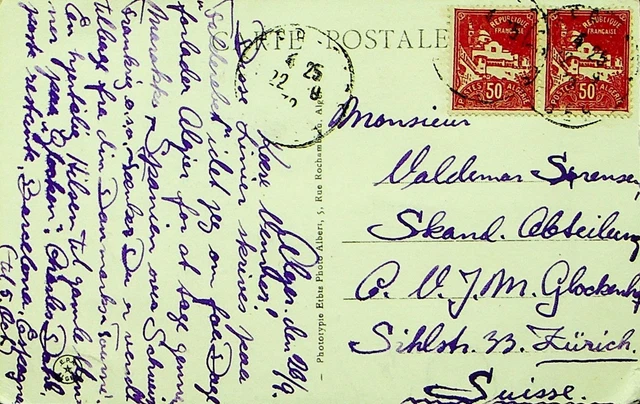 CARTE POSTALE
RÉPUBLIQUE
FRANÇAISE
POSTES ALGERIE
50
RÉPUBLIQUE
FRANÇAISE
POSTES ALGERIE
50
25
22
Monsieur
Valdemar Sørensen
Skand. Abteilung
C. V. J. M. Glockenh
Sihlstr. 33. Zürich.
Suisse.
Phototypie Etbts Photo Albert, 5, Rue Rochambeau, Alg
Alger, den 26/9.
Kære Venner!
Disse Linier skrives paa
idet jeg om faa Dage
forlader Alger for at tage gennem
Marokko & Spanien over Schweiz
Frankrig
tilbage fra din Danmarks
En hjertelig Hilsen til gamle
ner paa Glocken! Charles
poste restante, Barcelona, Espagne
(til 5 Okt)